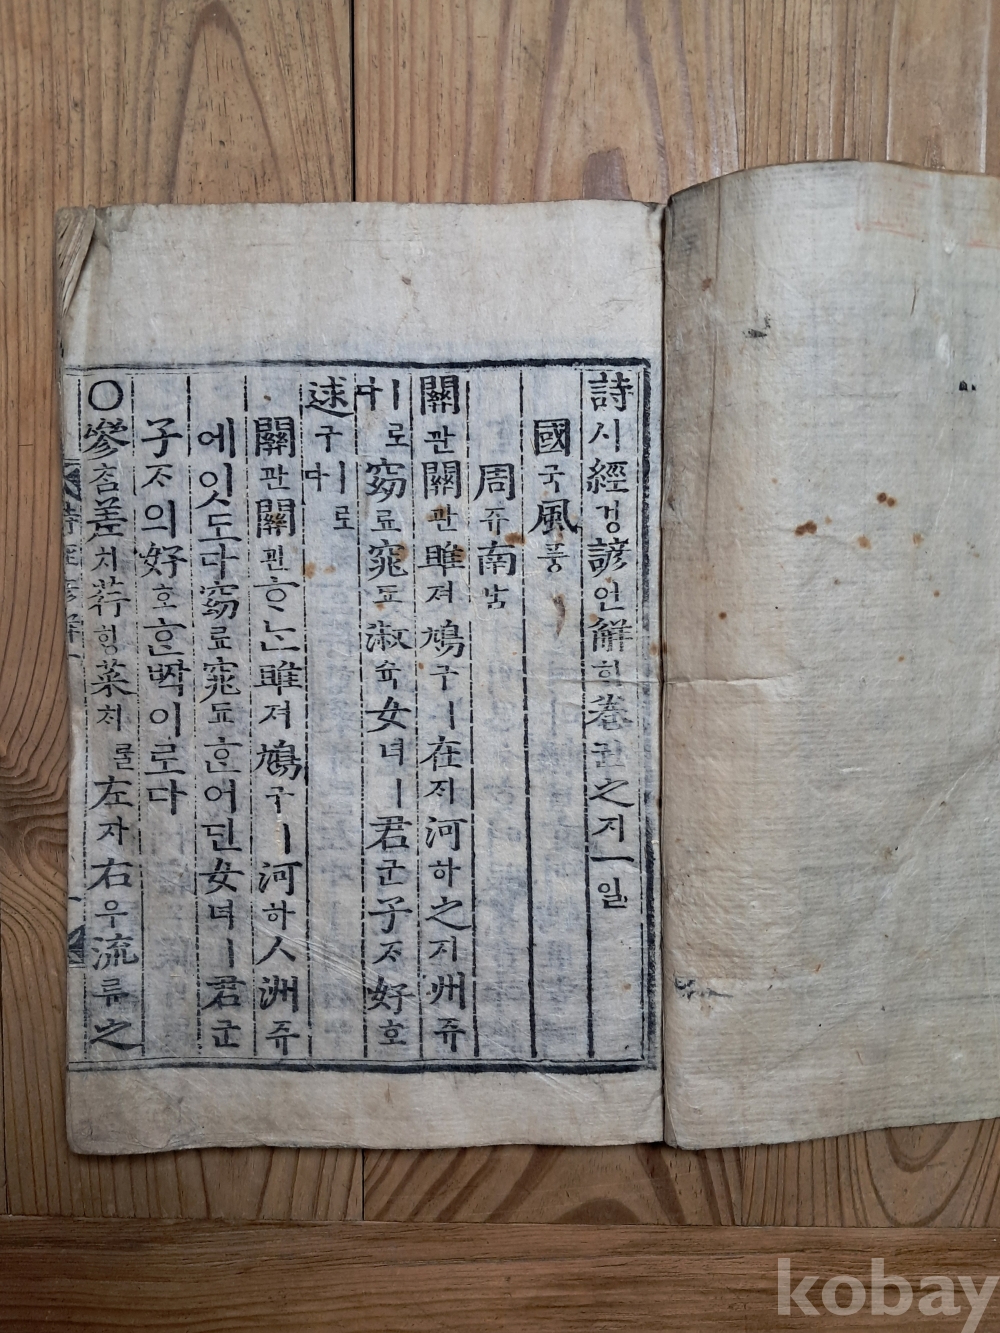 詩시經경諺언觧ᄒᆡ卷권之지一일
國국風풍
周쥬南남
關관關관雎져鳩구ㅣ在ᄌᆡ河하之지州쥬
ㅣ로다窈료窕됴淑슉女녀ㅣ君군子ᄌᆞ好호
逑구ㅣ로다
關관關관ᄒᆞᄂᆞᆫ雎져鳩구ㅣ河하人洲쥬
에잇도다窈료窕됴ᄒᆞᆫ어딘女녀ㅣ君군
子ᄌᆞ의好호ᄒᆞᆫᄧᅡᆨ이로다
○參참差치荇ᄒᆡᆼ菜ᄎᆡ를左자右우流류之
kobay